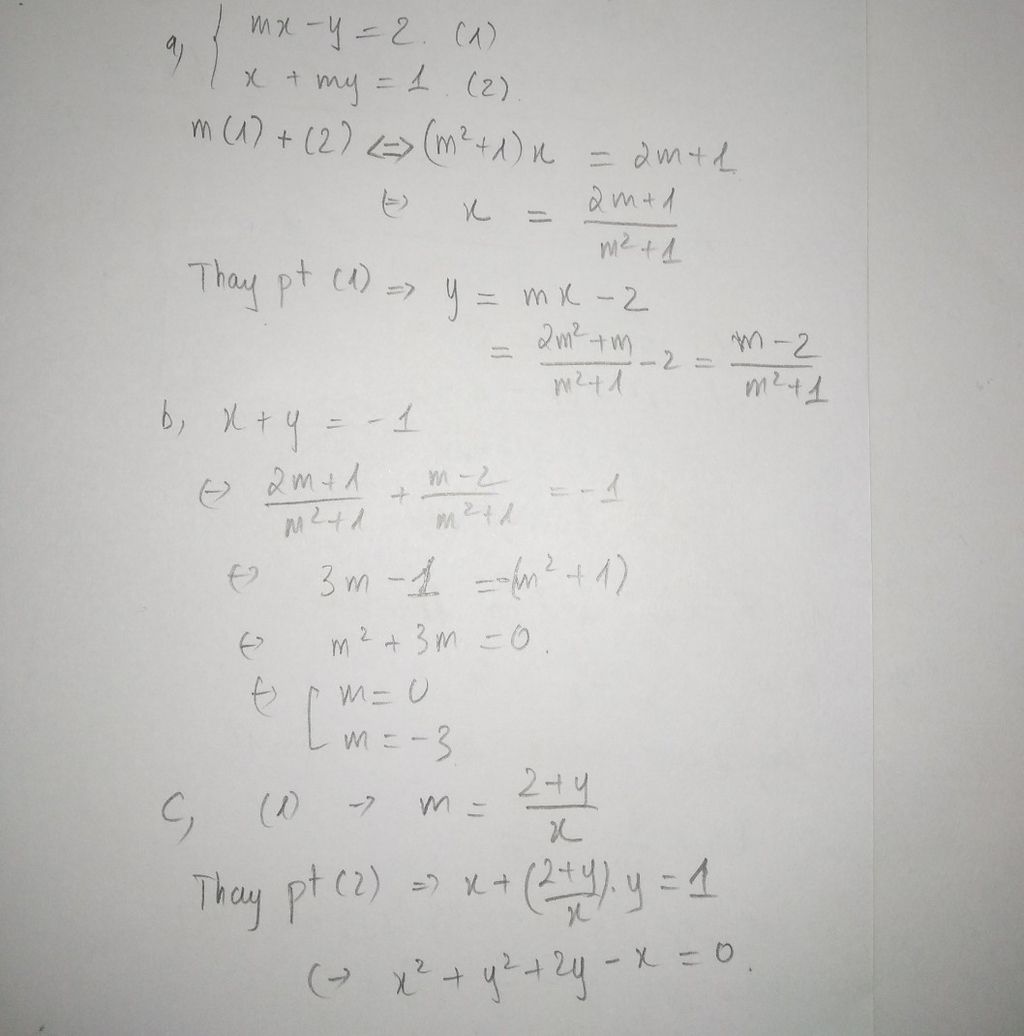 a, { mx - y = 2. (1)
x + my = 1. (2).
m(1) + (2) <=> (m²+1)x = 2m+1
<=> x = (2m+1)/(m²+1)
Thay pt (1) => y = mx - 2
= (2m²+m)/(m²+1) - 2 = (m-2)/(m²+1)
b, x + y = -1
<=> (2m+1)/(m²+1) + (m-2)/(m²+1) = -1
<=> 3m - 1 = -(m²+1)
<=> m² + 3m = 0.
<=> [ m = 0
m = -3
C, (1) -> m = (2+y)/x
Thay pt (2) => x + ((2+y)/x).y = 1
<=> x² + y² + 2y - x = 0.